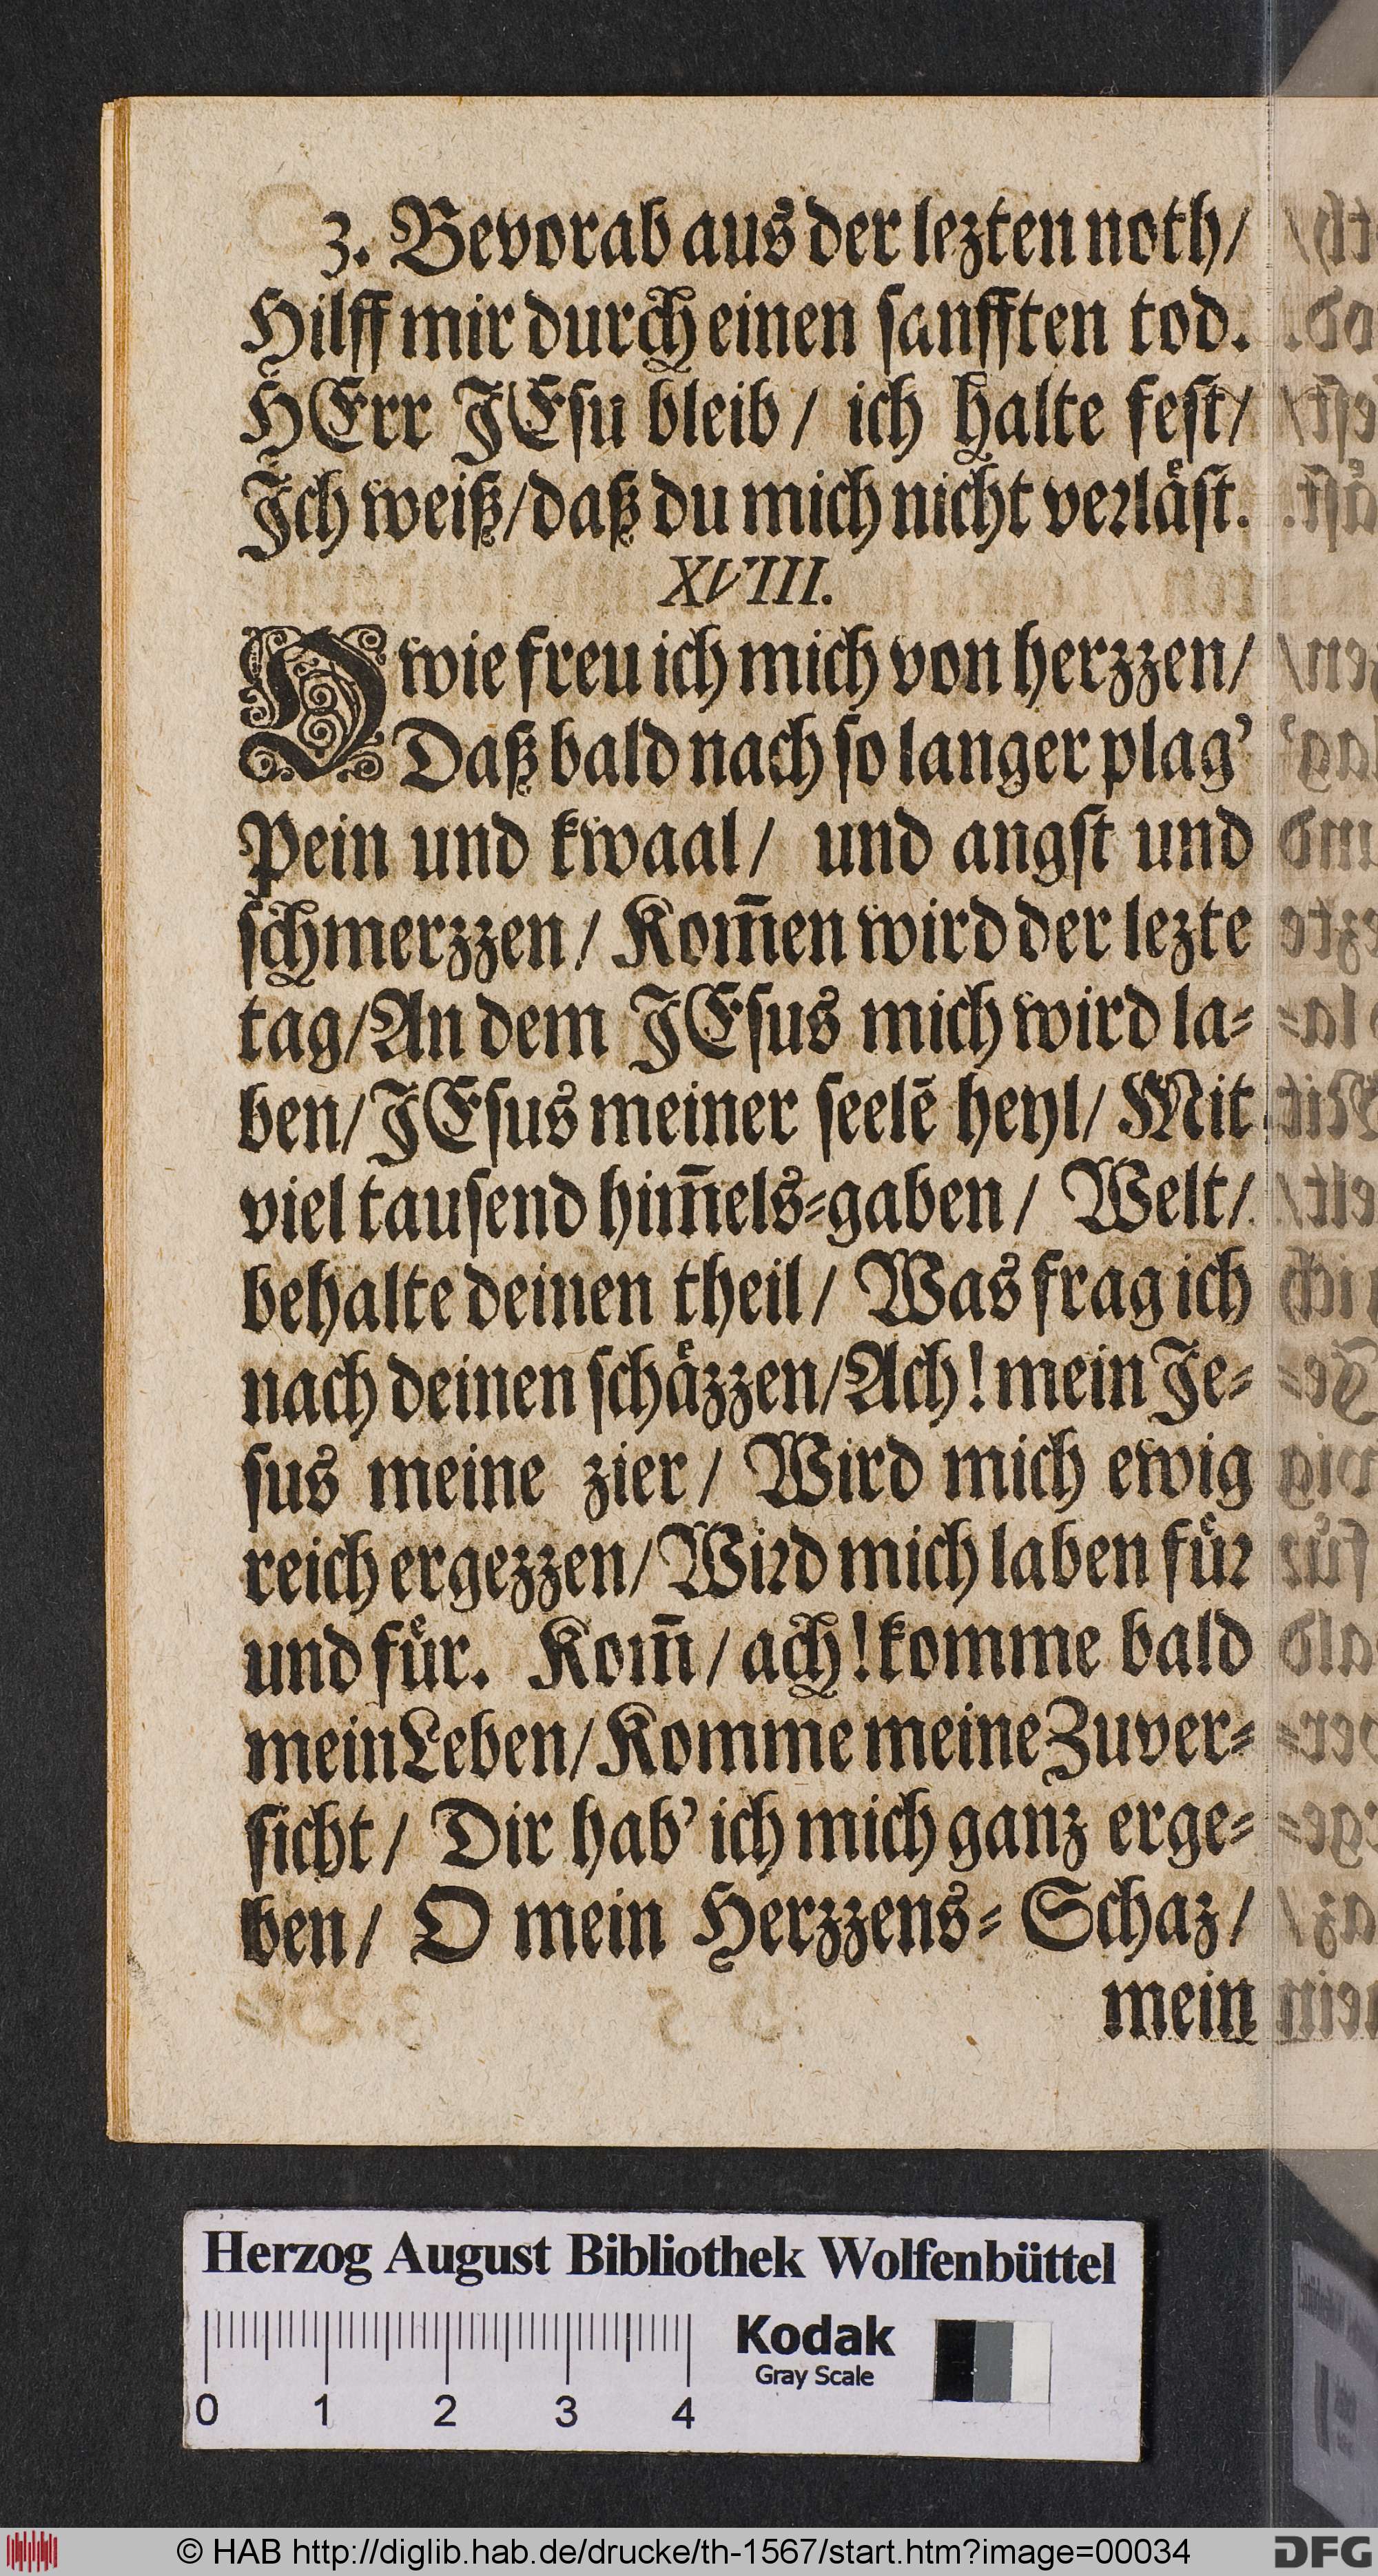 3. Bevorab aus der lezten noth/
Hilff mir durch einen sanfften tod.
HErr JEsu bleib/ ich halte fest/
Jch weiß/daß du mich nicht verlåst.
XVIII.
O wie freu ich mich von herzzen/
Daß bald nach so langer plag'
Pein und kwaal/ und angst und
schmerzzen/ Kom̄en wird der lezte
tag/An dem JEsus mich wird la=
ben/JEsus meiner seelē heyl/ Mit
viel tausend him̄els=gaben/ Welt/
behalte deinen theil/ Was frag ich
nach deinen schåzzen/Ach! mein Je=
sus meine zier/ Wird mich ewig
reich ergezzen/Wird mich laben fuͤr
und fuͤr. Kom̄/ach! komme bald
mein Leben/Komme meine Zuver=
sicht/ Dir hab' ich mich ganz erge=
ben/ O mein Herzzens=Schaz/
mein
Herzog August Bibliothek Wolfenbüttel
Kodak
Gray Scale
0 1 2 3 4
© HAB http://diglib.hab.de/drucke/th-1567/start.htm?image=00034
DFG